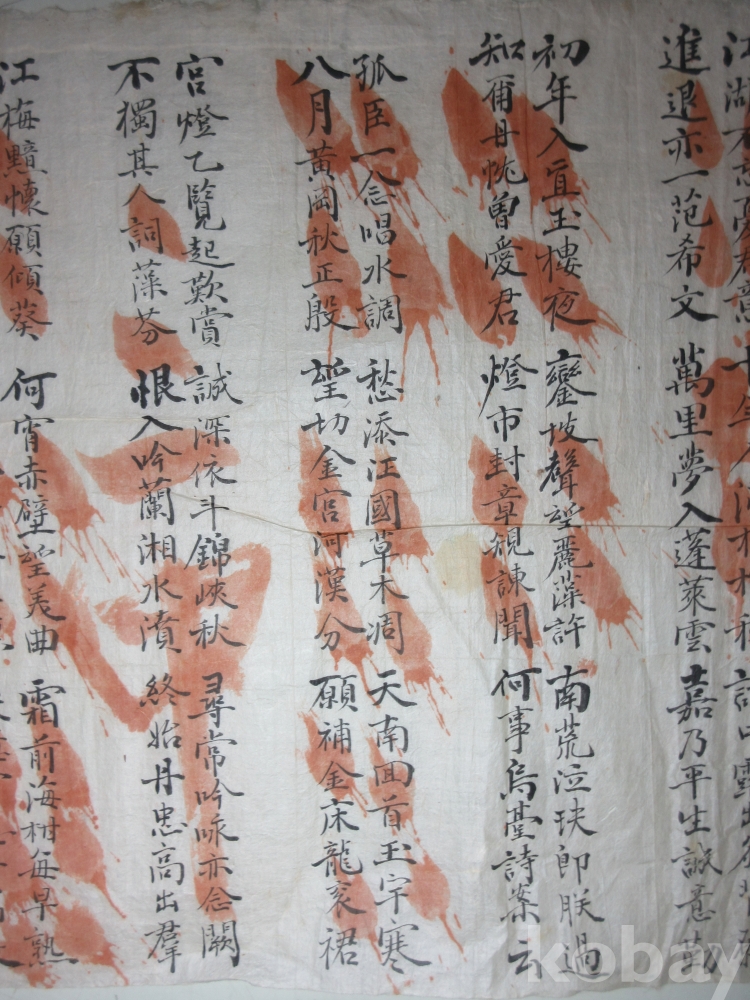 江湖不
進退亦一范希文 萬里夢入蓬萊雲 嘉乃平生誠意勤
初年入直玉樓夜 鑾坡聲望麗藻許 南荒泣玦卽朕過
知爾丹忱曾愛君 燈市封章規諫聞 何事烏臺詩案云
孤臣一念唱水調 愁添江國草木凋 天南回首玉宇寒
八月黃岡秋正殷 望切金宮河漢分 願補金床龍袞裙
宮燈乙覽起歎賞 誠深依斗錦峽秋 尋常吟咏亦念闕
不獨其人詞藻芬 恨入吟蘭湘水濆 終始丹忠高出羣
江梅黯懷願傾葵 何宵赤壁望美曲 霜前海樹每早熟
kobay